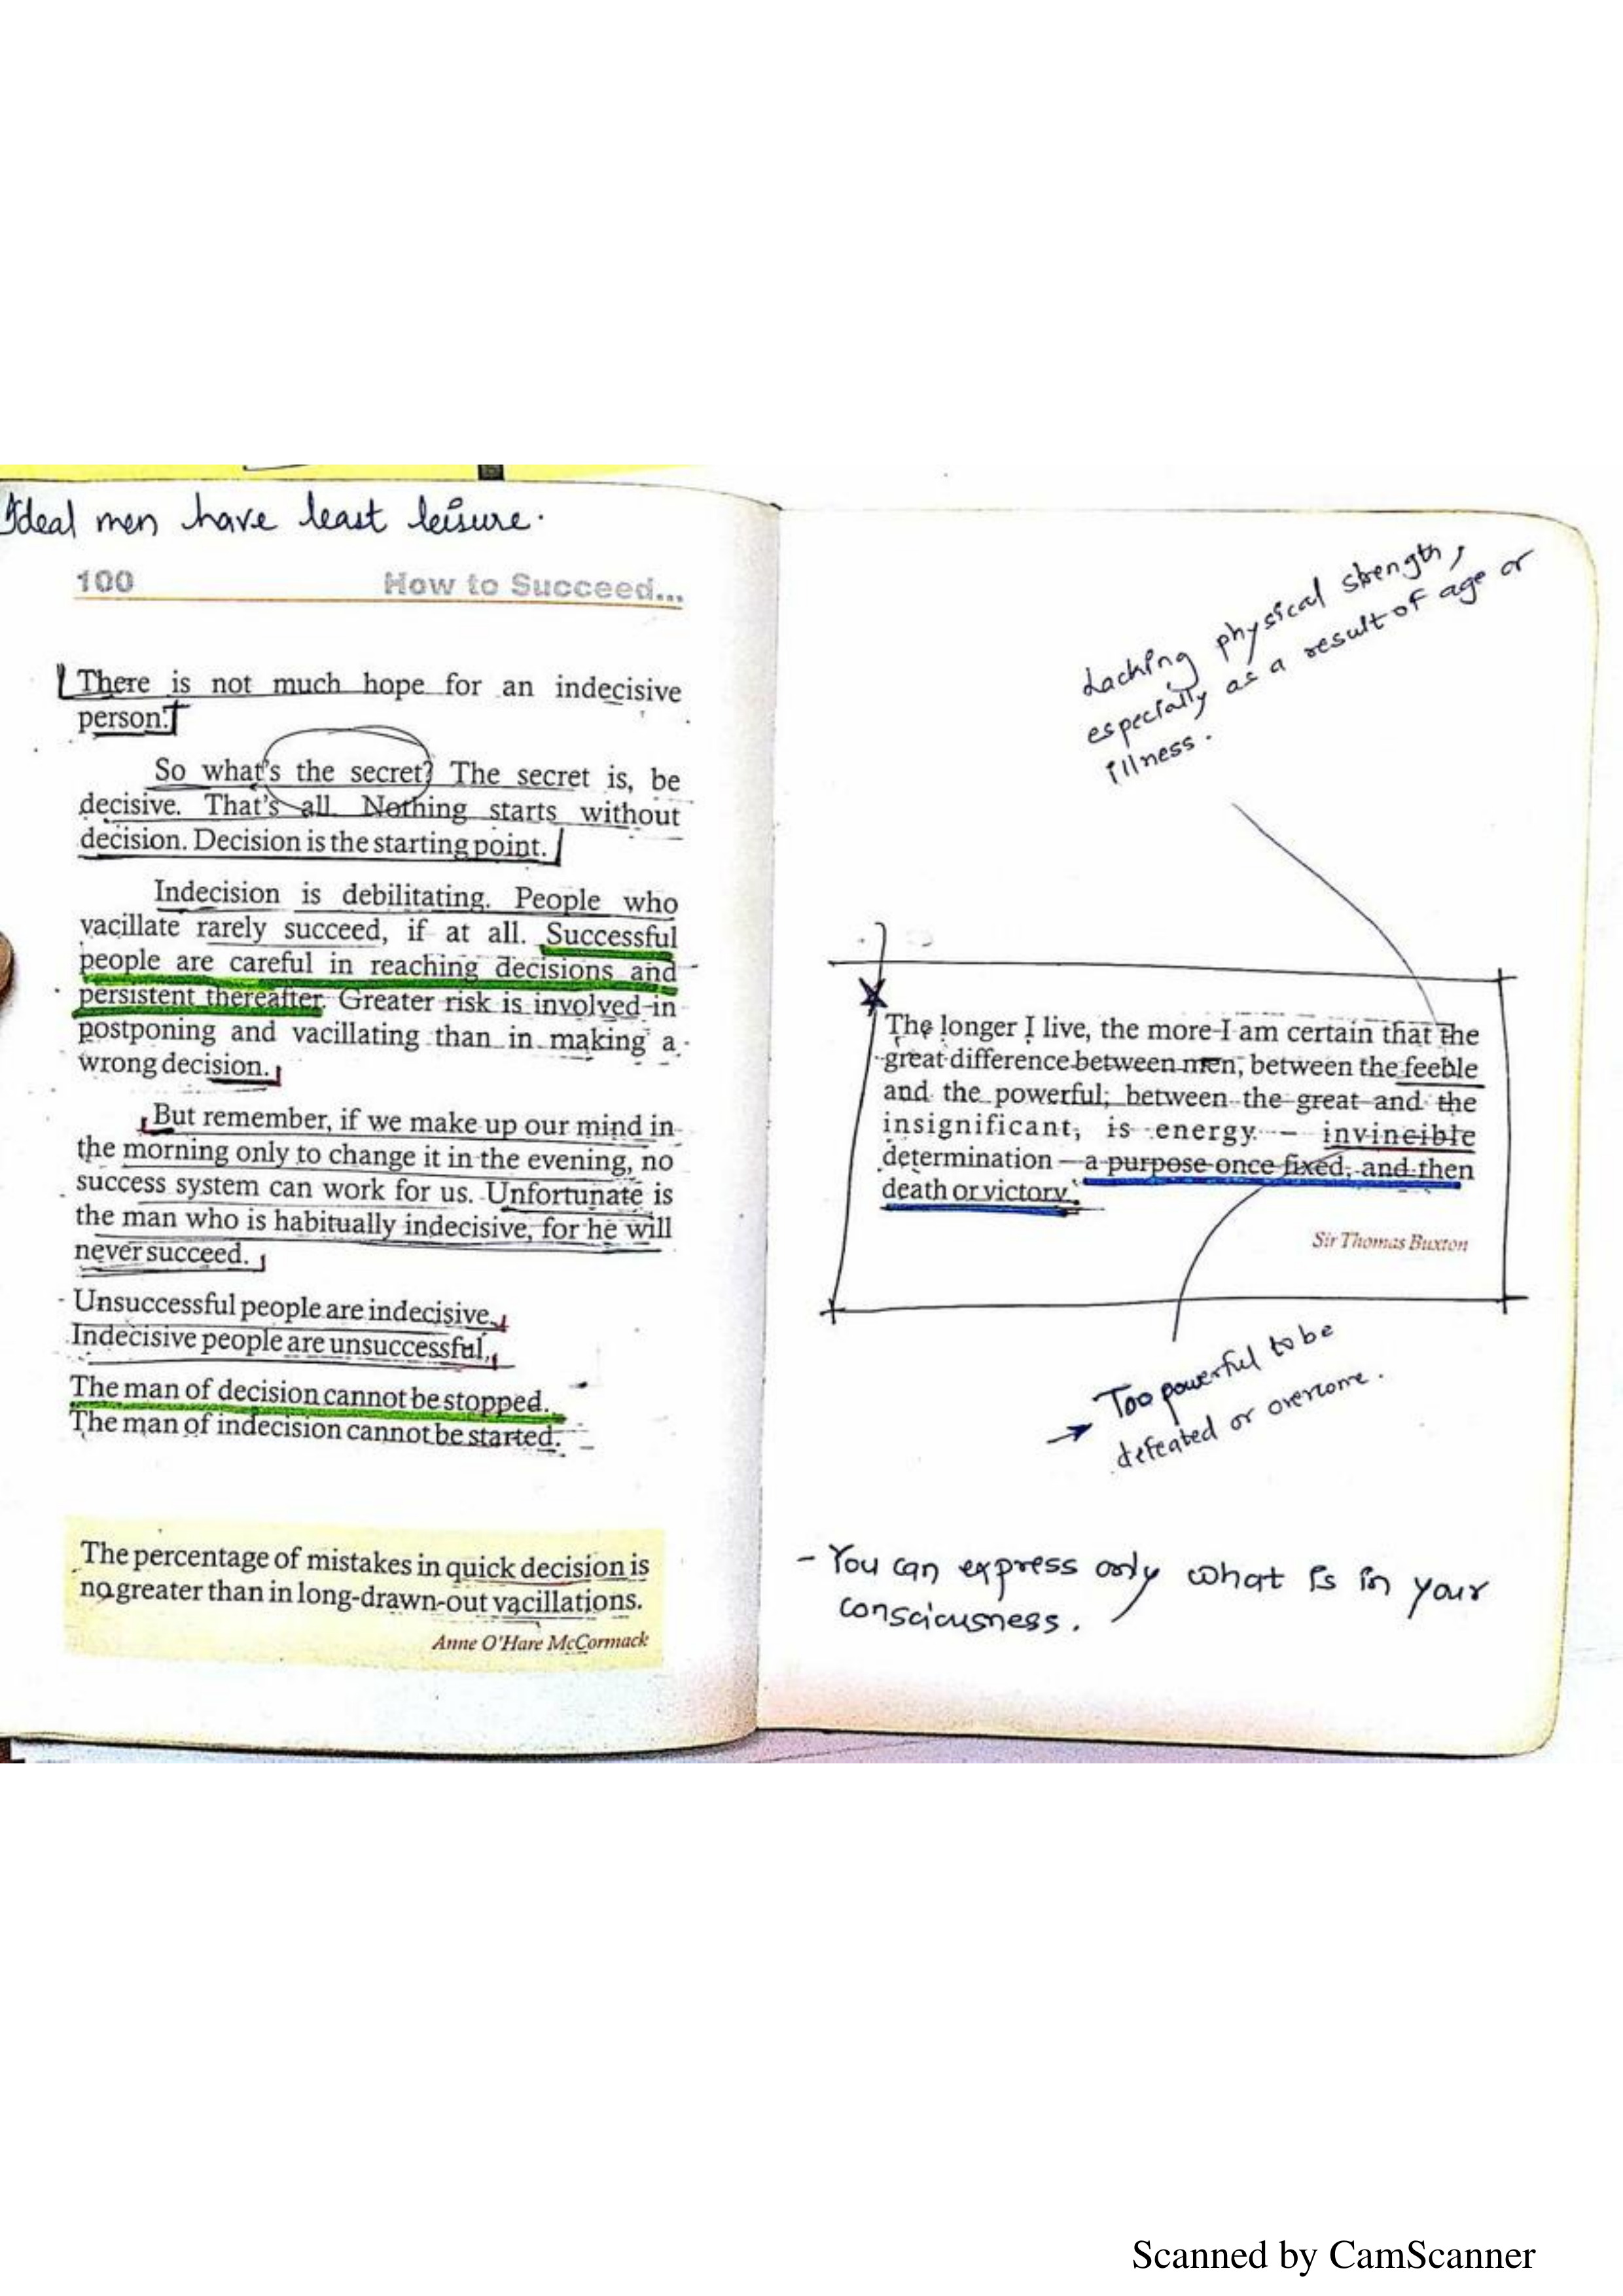 Ideal men have least leisure.
100 How to Succeed...
There is not much hope for an indecisive
person.
So what's the secret? The secret is, be
decisive. That's all. Nothing starts without
decision. Decision is the starting point.
Indecision is debilitating. People who
vacillate rarely succeed, if at all. Successful
people are careful in reaching decisions and
persistent thereafter. Greater risk is involved in
postponing and vacillating than in making a
wrong decision.
But remember, if we make up our mind in
the morning only to change it in the evening, no
success system can work for us. Unfortunate is
the man who is habitually indecisive, for he will
never succeed.
Unsuccessful people are indecisive.
Indecisive people are unsuccessful.
The man of decision cannot be stopped.
The man of indecision cannot be started.
The percentage of mistakes in quick decision is
no greater than in long-drawn-out vacillations.
Anne O'Hare McCormack
Lacking physical strength,
especially as a result of age or
illness.
The longer I live, the more I am certain that the
great difference between men, between the feeble
and the powerful; between the great and the
insignificant, is energy – invincible
determination – a purpose once fixed, and then
death or victory.
Sir Thomas Buxton
→ Too powerful to be
defeated or overcome.
- You can express only what is in your
consciousness.
Scanned by CamScanner